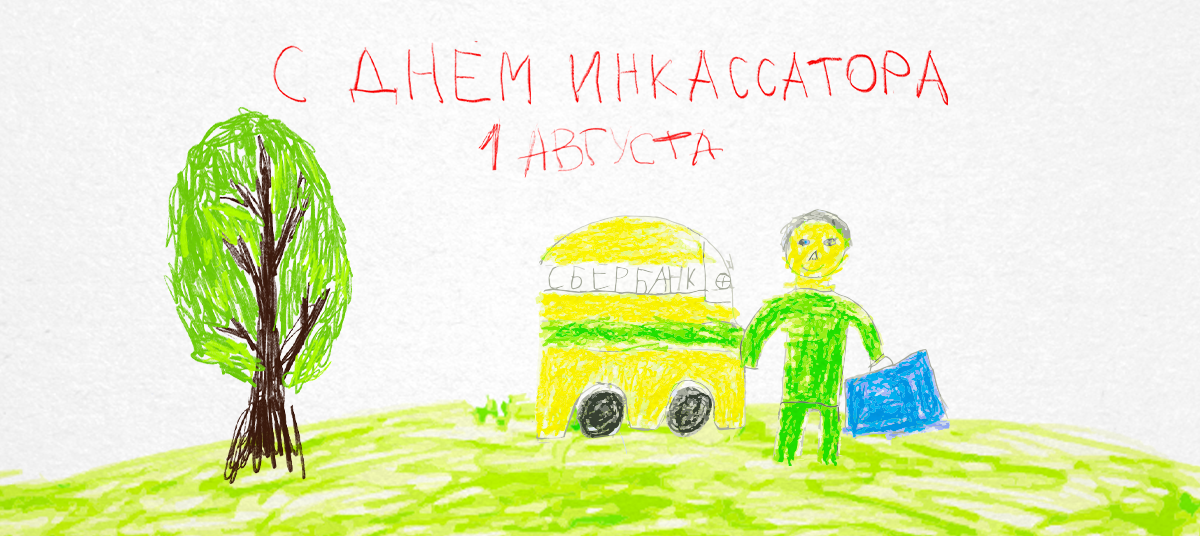 С ДНЕМ ИНКАССАТОРА
1 АВГУСТА
СБЕРБАНК